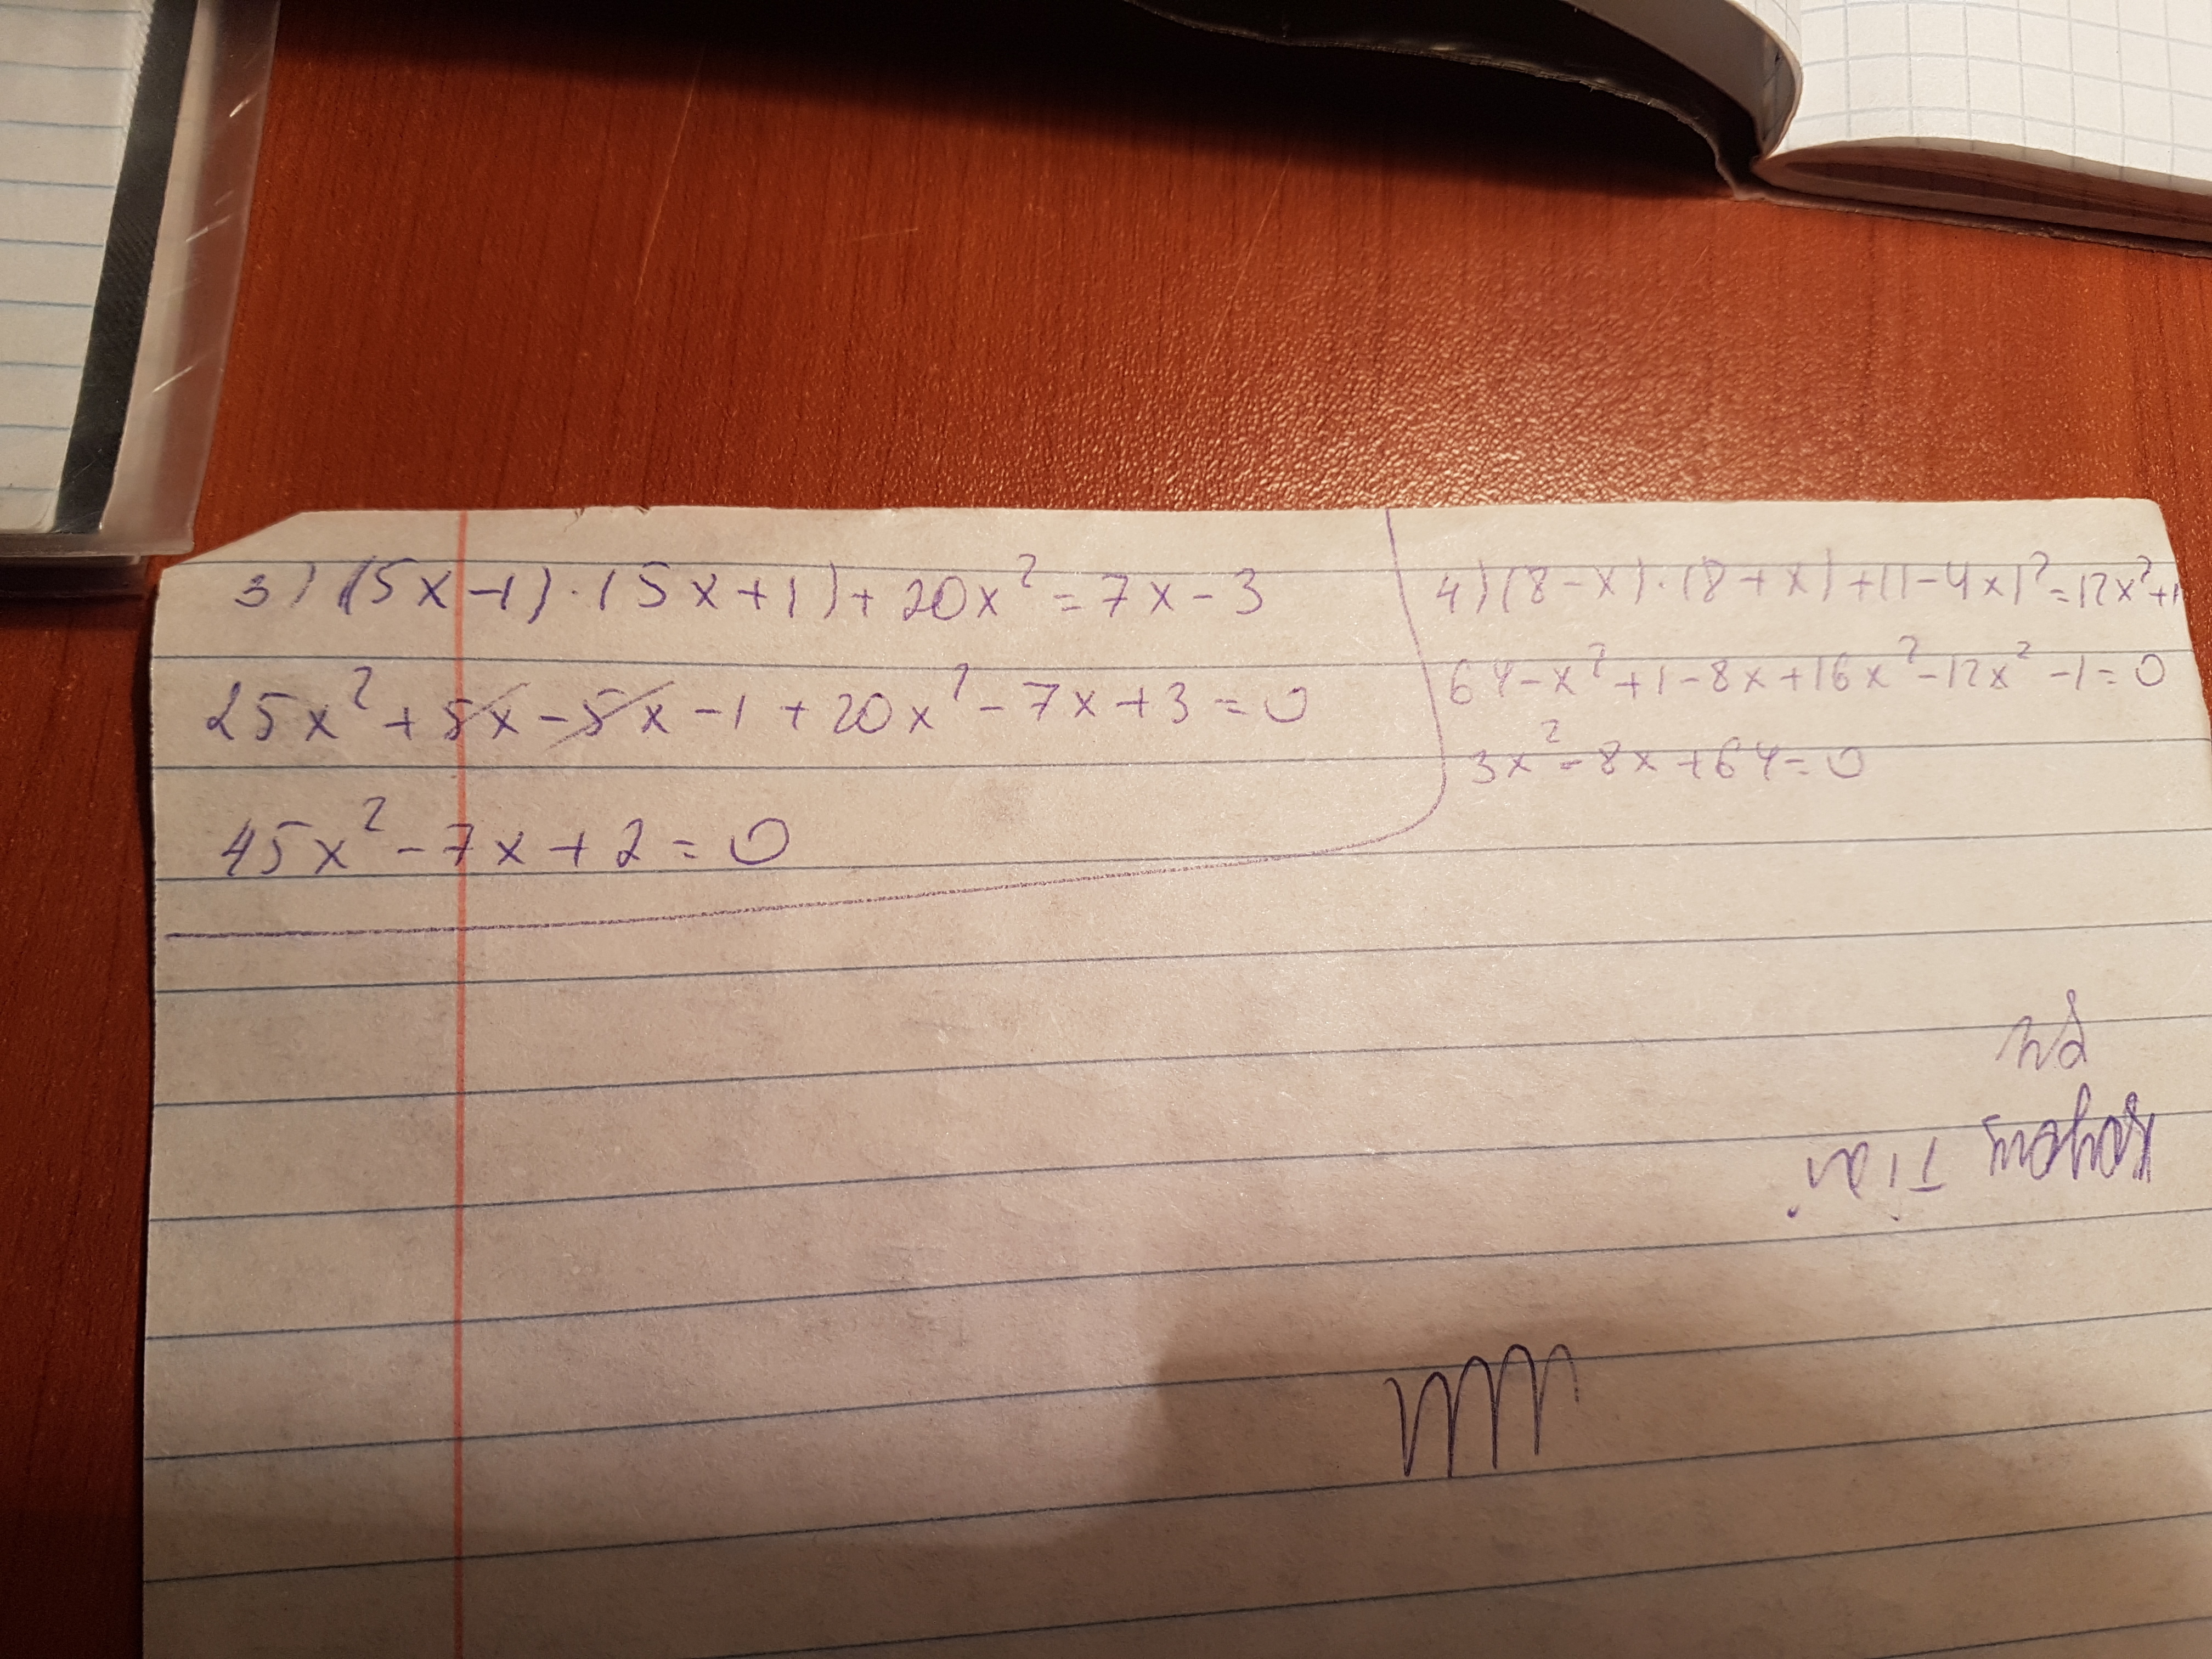 3) (5x-1)·(5x+1)+20x²=7x-3
25x²+5x-5x-1+20x²-7x+3=0
45x²-7x+2=0
4) (8-x)·(8+x)+(1-4x)²=12x²+1
64-x²+1-8x+16x²-12x²-1=0
3x²-8x+64=0